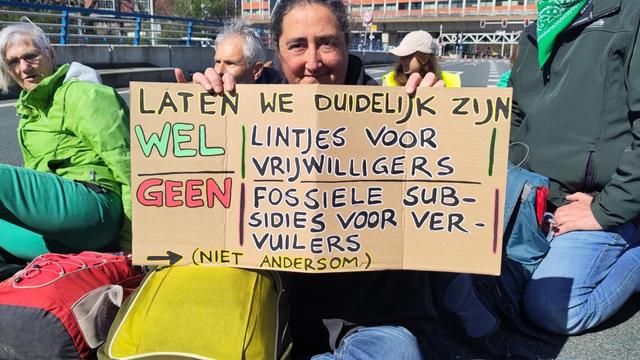 LATEN WE DUIDELIJK ZIJN
WEL
LINTJES VOOR
VRIJWILLIGERS
GEEN
FOSSIELE SUB-
SIDIES VOOR VER-
VUILERS
→ (NIET ANDERSOM)